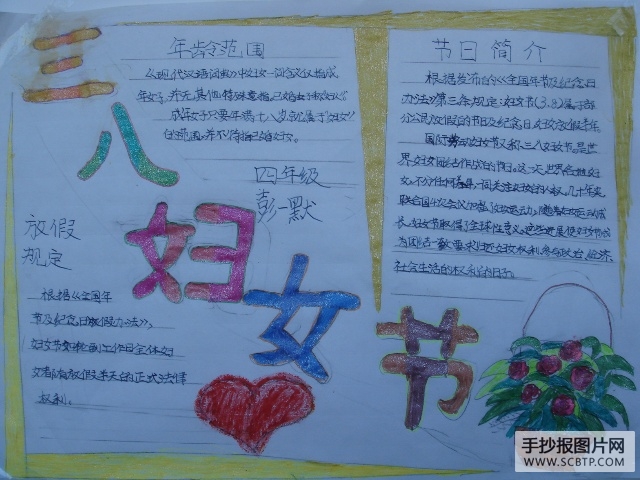 三八妇女节
年龄范围
《现代汉语词典》中妇女一词含义仅指成
年女子,并无其他特殊意指已婚女子称妇女。
成年女子只要年满十八岁就属于"妇女"
的范围,并不特指已婚妇女。
四年级
彭一默
放假
规定
根据《全国年
节及纪念日放假办法》,
妇女节
工作日全体妇
女都有放假半天的正式法律
权利。
节日简介
根据发布的《全国年节及纪念日
办法》第三条规定:妇女节(3.8)属于部
分公民放假的节日及纪念日,妇女放假半年
国际劳动妇女节又称三八妇女节。是世
界妇女
的节日。这一天世界各地妇
女,不分任何
,一同关注妇女的人权。几十年来
联合国
次会议加强了妇女运动,随着妇女运动成
长,妇女节取得了全球性意义。这些进展使妇女节成
为团结一致、要求
妇女权利、参与政治、经济
社会生活的权利的日子。
手抄报图片网
WWW.SCBTP.COM